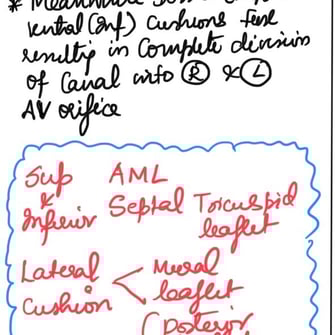 * Meanwhile
ventral (Inf) Cushions fuse
resulting in Complete division
of Canal into Ⓡ & Ⓛ
AV orifice
Sup AML
& Septal Toicuspid
Inferior leaflet
Lateral Mural
Cushion leaflet
(Posterior